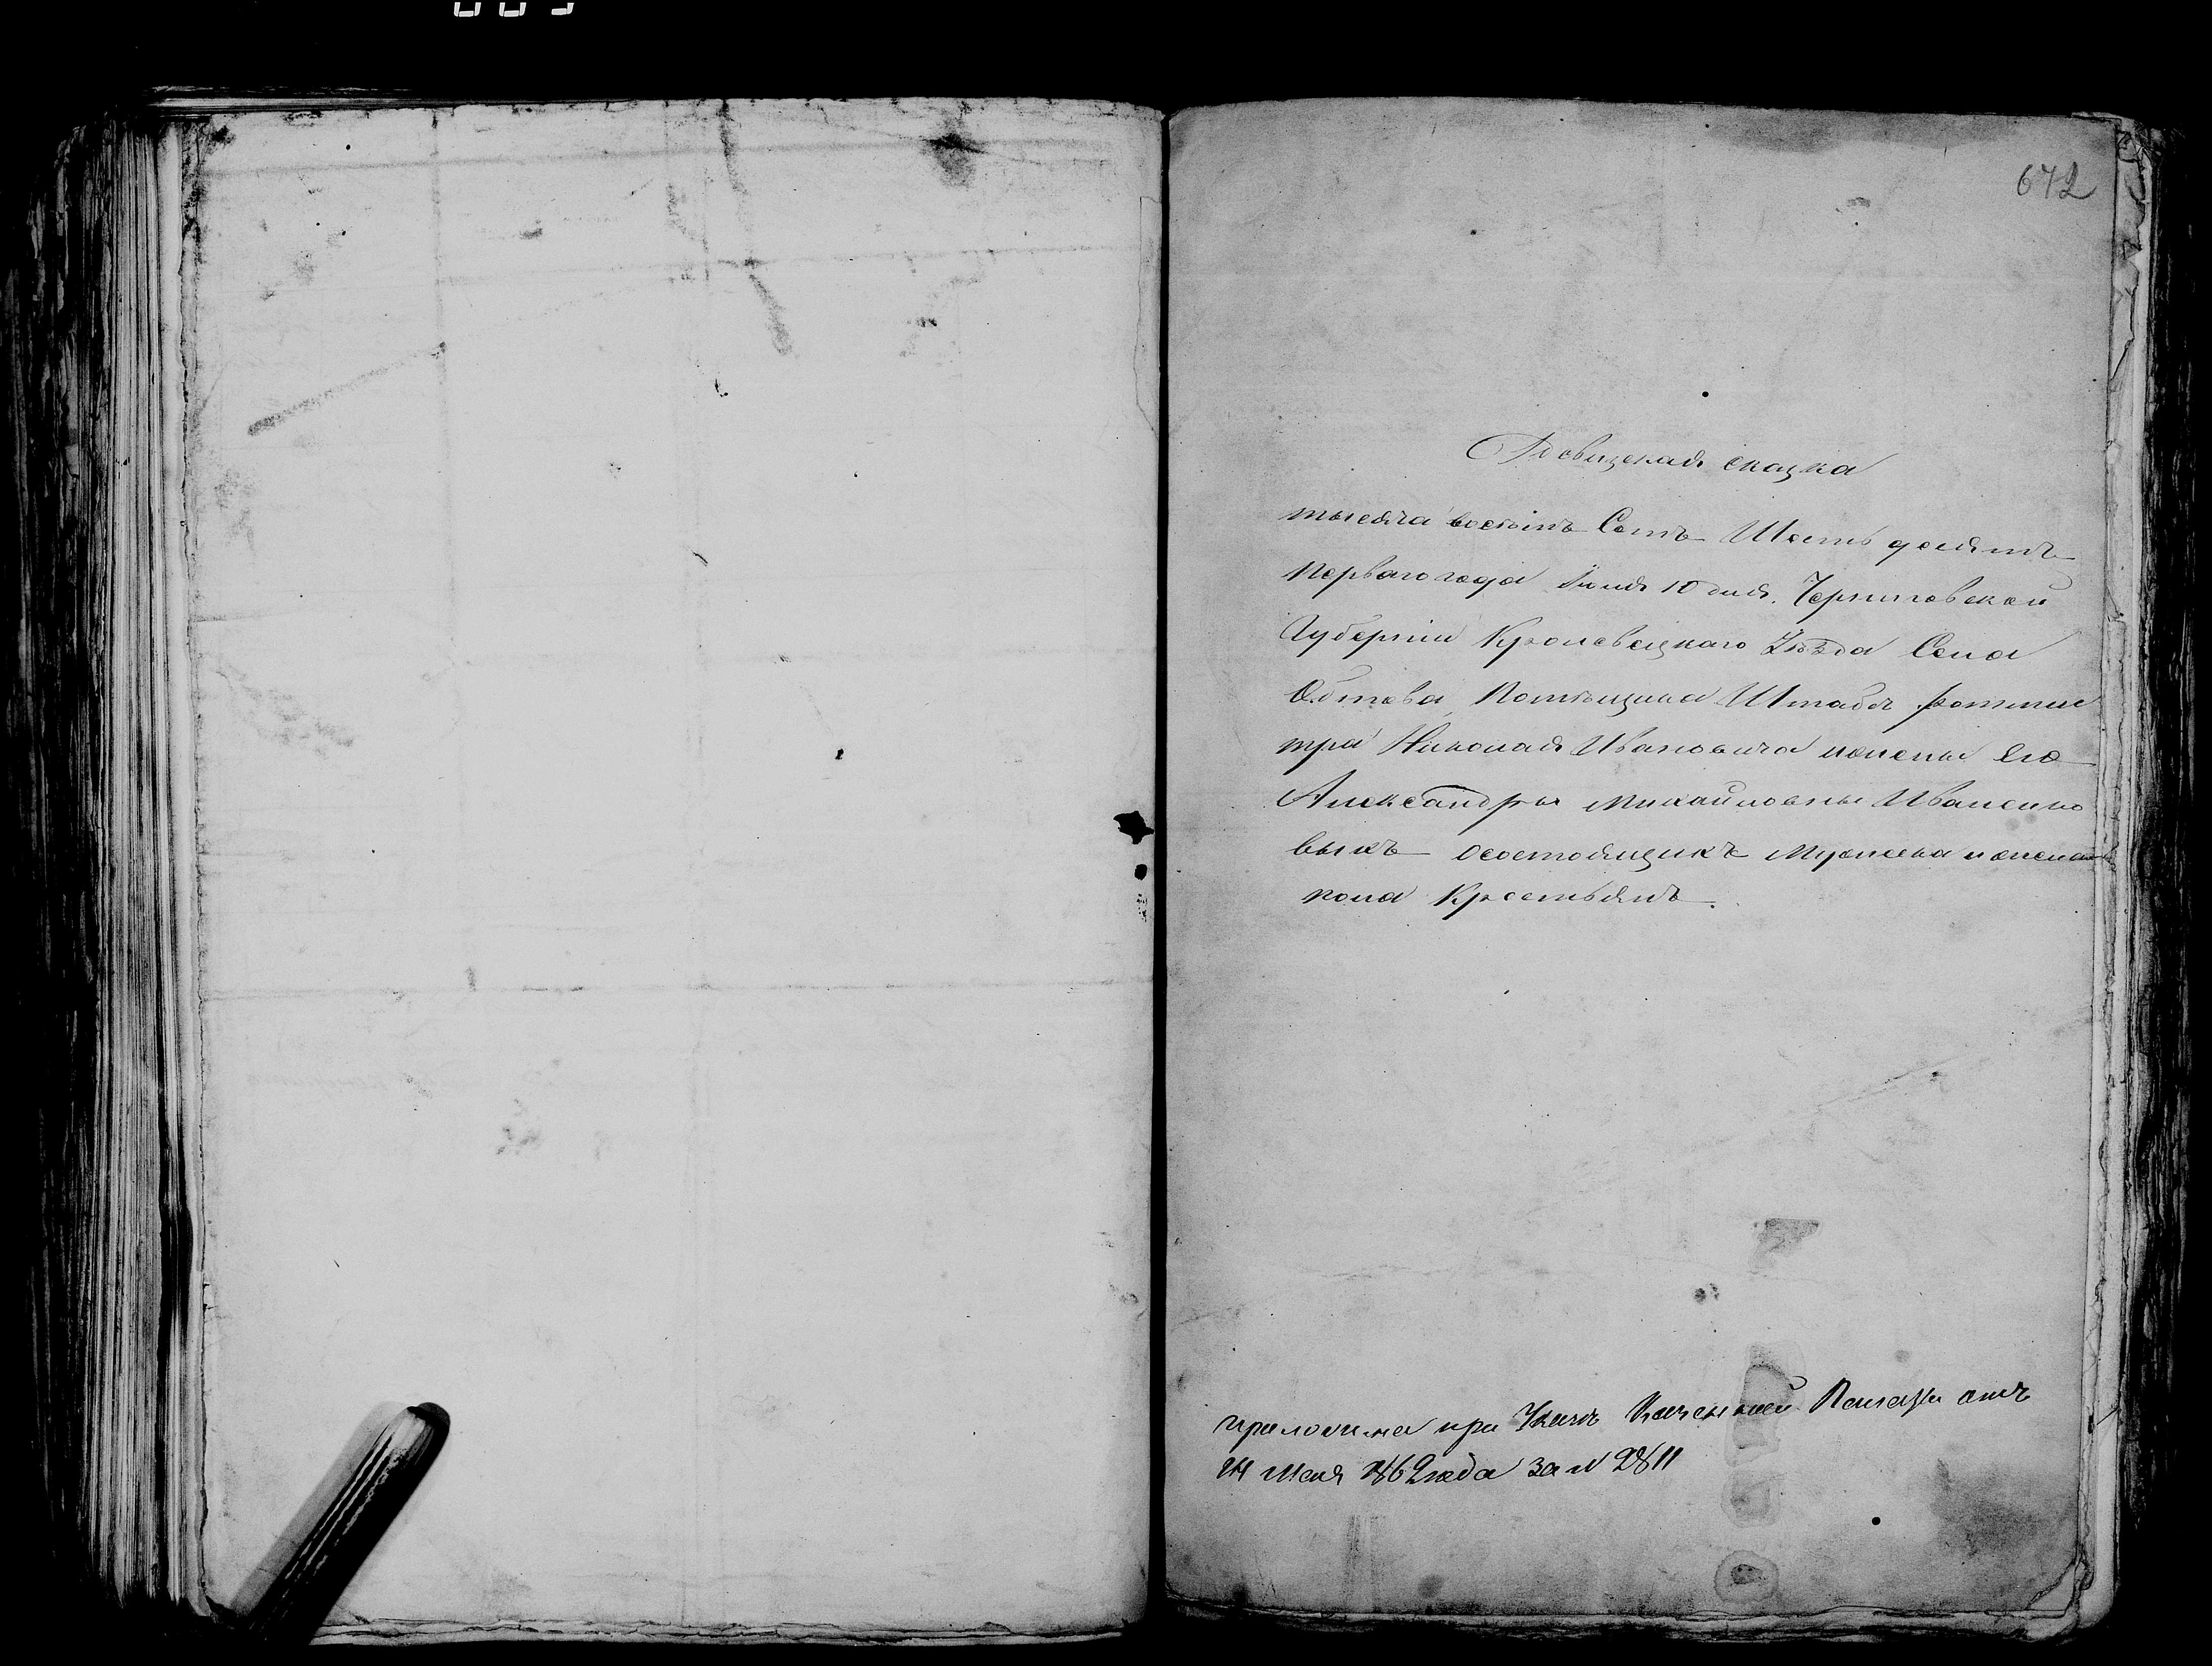 672
Ревизская сказка
тысяча восѣмъ Сотъ Шесть десятъ
перваго года Іюня 10 дня. Черниговской
Губерніи Кролевецкаго Уѣзда Села
Обтова Помѣщика Штабъ ротмис
тра Николая Ивановича ижены Его
Александры Михайловны Иваненко
выхъ осостоящихъ Мужеска и женска
пола Крестьянъ.
приложена при Указѣ Казенной Палаты отъ
1862 года за N 2811